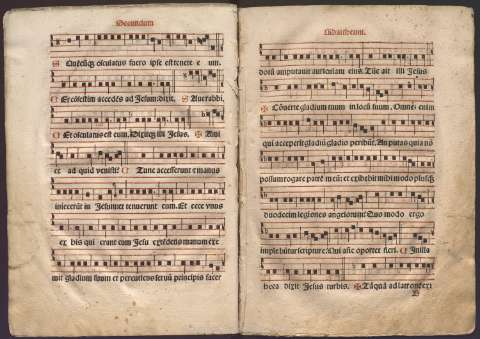 Secundum
S Quēcūq; osculatus fuero ipse est tenete e um.
C Et confestim accedēs ad Jesum: dixit. S Aue rabbi.
C Et osculatus est eum. Dixitq; illi Jesus. ✠ Ami
ce ad quid venisti? C Tunc accesserunt et manus
iniecerūt in Jesum et tenuerunt eum. Et ecce vnus
ex his qui erant cum Jesu extēdēs manum exe
mit gladium suum et percutiens seruū principis sacer
Mattheum.
dotū amputauit auriculam eius. Tūc ait illi Jesus
✠ Cōuerte gladium tuum in locū suum. Omnes enim
qui acceperīt gladiū gladio peribūt. An putas quia nō
possum rogare patrē meū: et exhibebit mihi modo plusq̄
duodecim legiones angelorum? Quo modo ergo
implebūtur scripture? Quia sic oportet fieri. C In illa
hora dixit Jesus turbis. ✠ Tāquā ad latronē exi